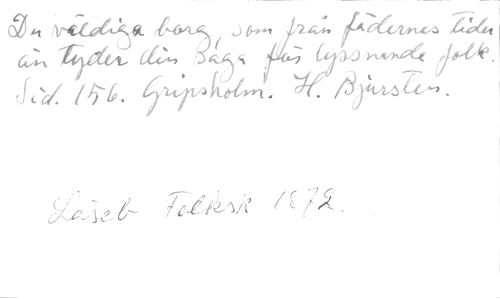 Du väldiga borg, som från fädernes tider
än tyder din Saga för lyssnande folk.
Sid. 156. Gripsholm. H. Bjursten.
Läseb Folksk 1872.